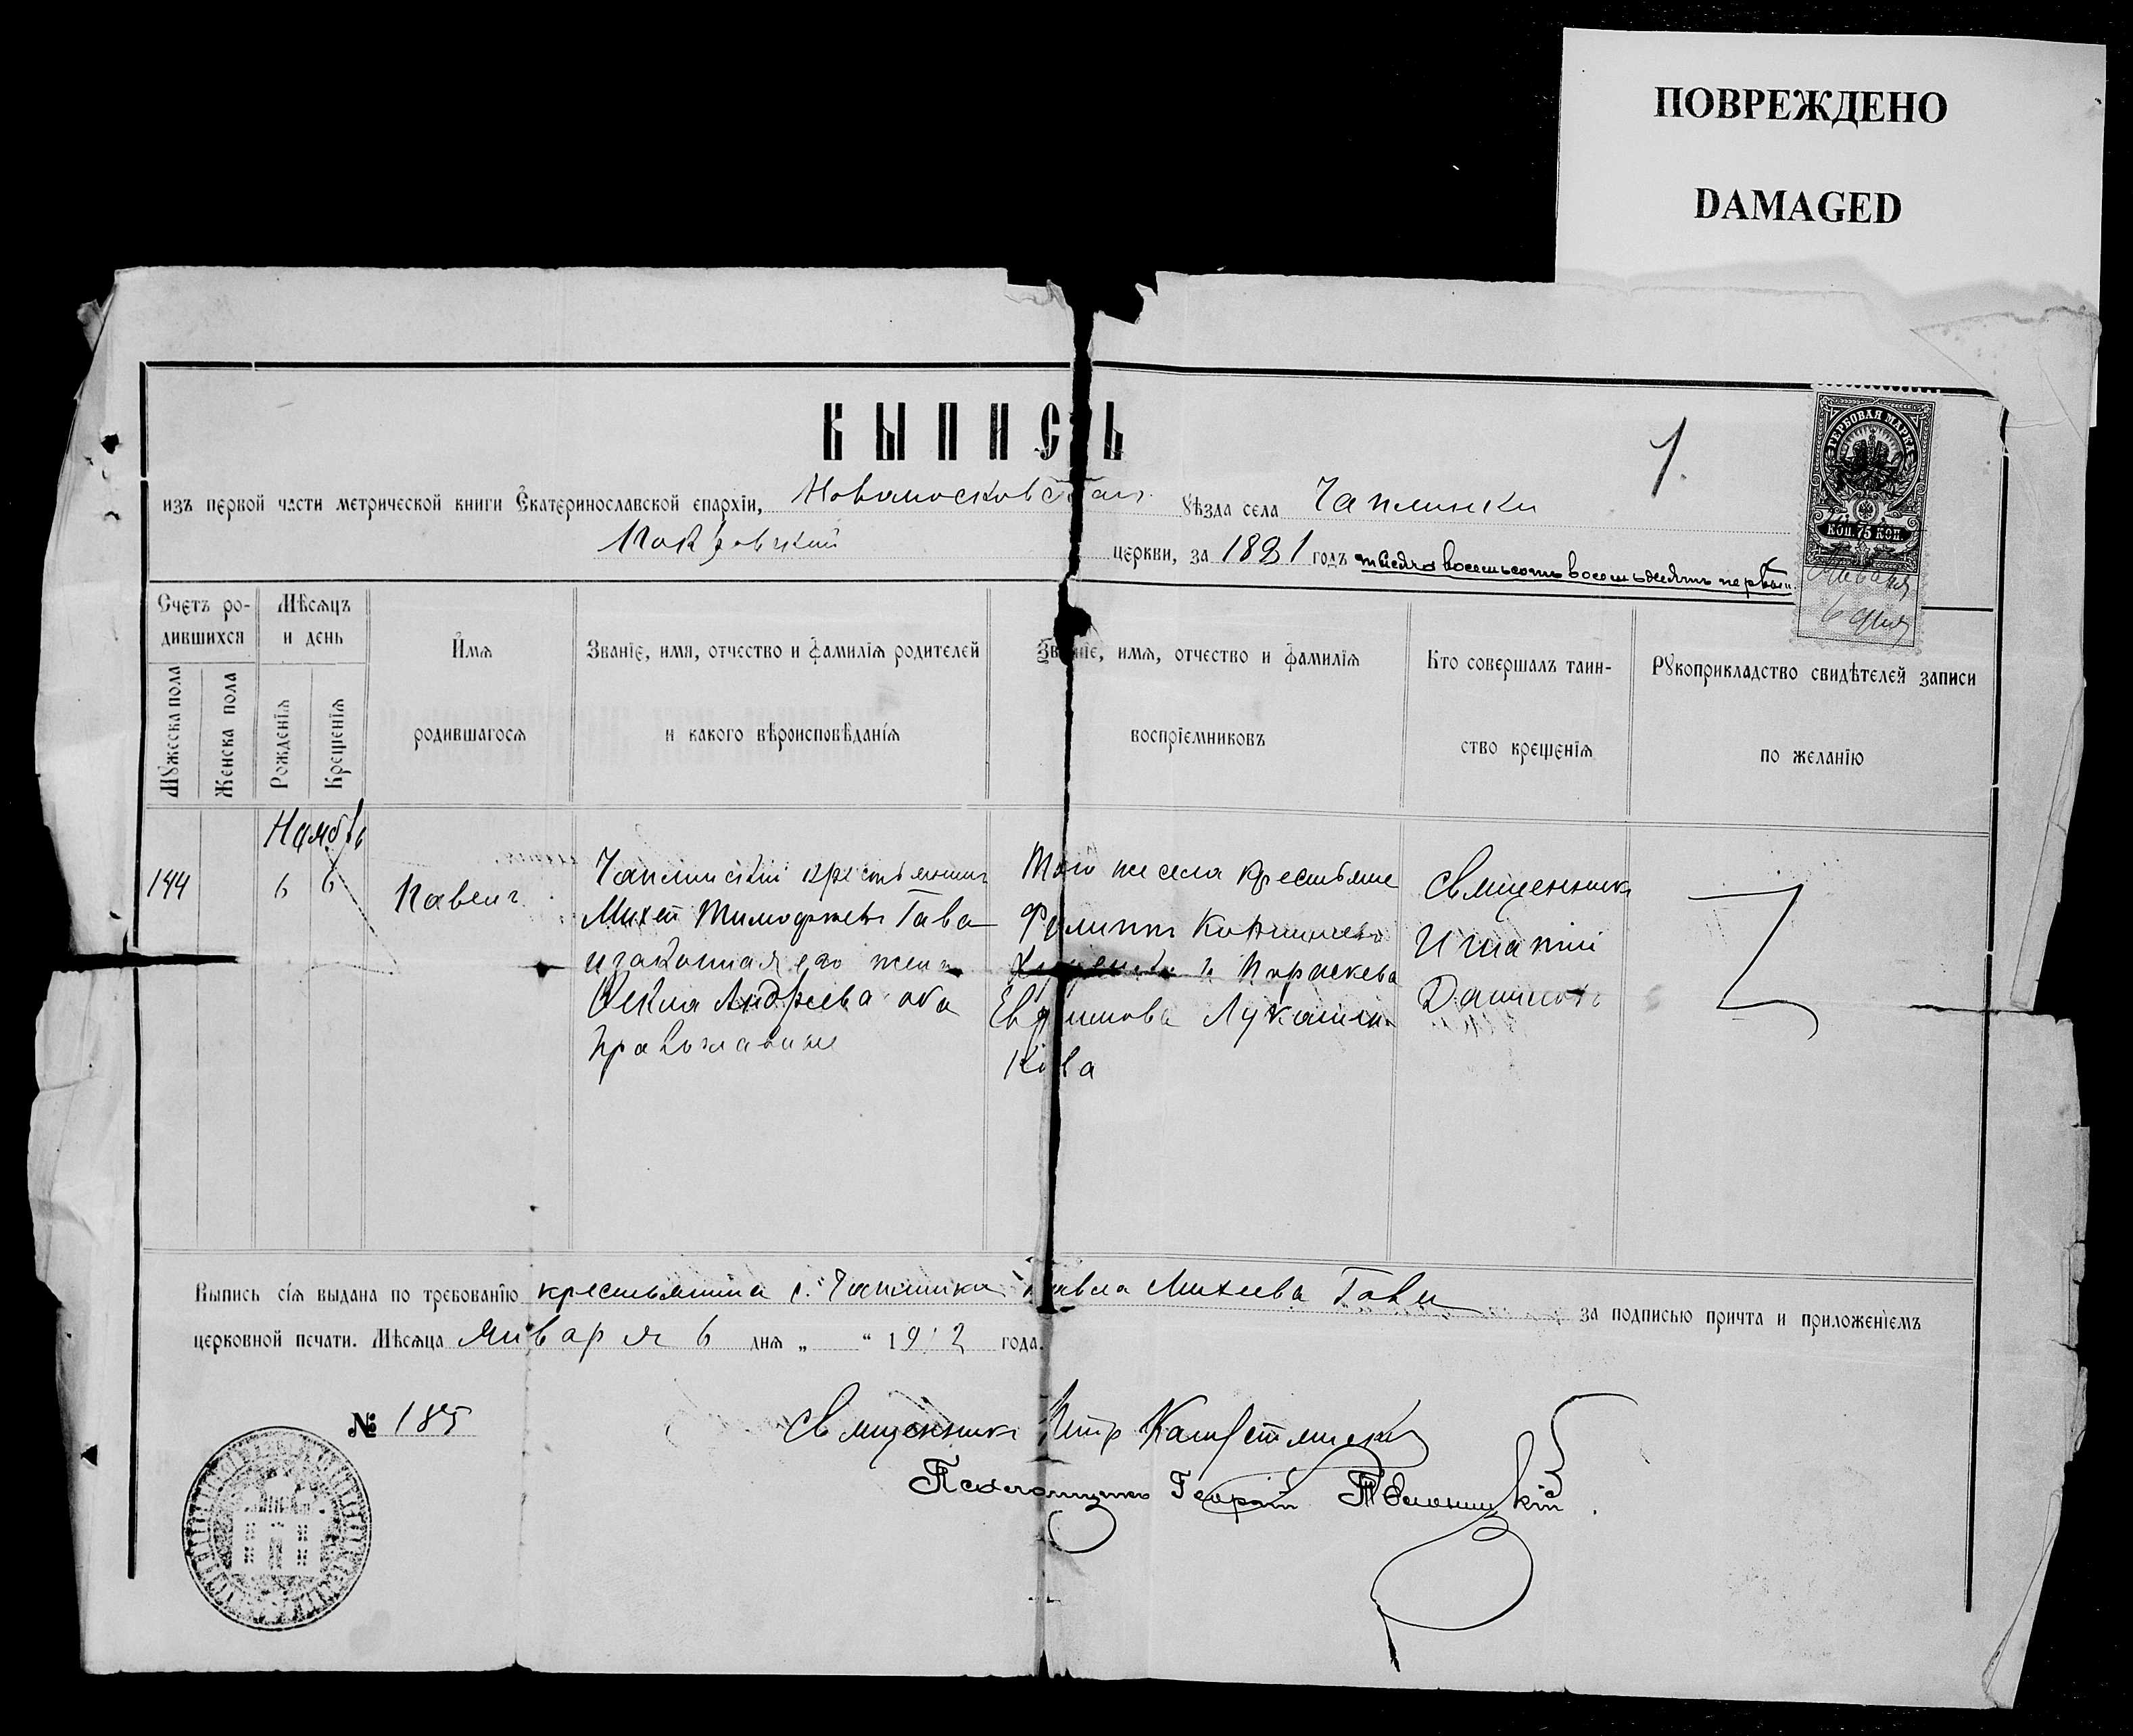 ПОВРЕЖДЕНО
DAMAGED
ВЫПИСЬ
1.
ГЕРБОВАЯ МАРКА
КОП. 75 КОП.
Января
6 дня
изъ первой части метрической книги Екатеринославской епархіи, Новомосковскаго уѣзда села Чаплинки
Покровской церкви, за 1881 годъ тысяча восемьсотъ восемьдесятъ первый
Счетъ родившихся
Мѣсяцъ и день
Мужеска пола
Женска пола
Рожденія
Крещенія
Имя родившагося
Званіе, имя, отчество и фамилія родителей
и какого вѣроисповѣданія
Званіе, имя, отчество и фамилія
воспріемниковъ
Кто совершалъ таинство крещенія
Рукоприкладство свидѣтелей записи
по желанію
Ноябрь
144
6 6
Павелъ
Чаплинскій крестьянинъ
Михей Тимофеевъ Гава
и законная его жена
Андреева оба
православные
Того же села крестьяне
Филиппъ
и Параскева
Священникъ
Игнатій
Выпись сія выдана по требованію крестьянина с. Чаплинки Павла Михеева Гавы за подписью причта и приложеніемъ
церковной печати. Мѣсяца Января 6 дня „ “ 1912 года.
№ 185
Священникъ Петр
Псаломщикъ Георгій